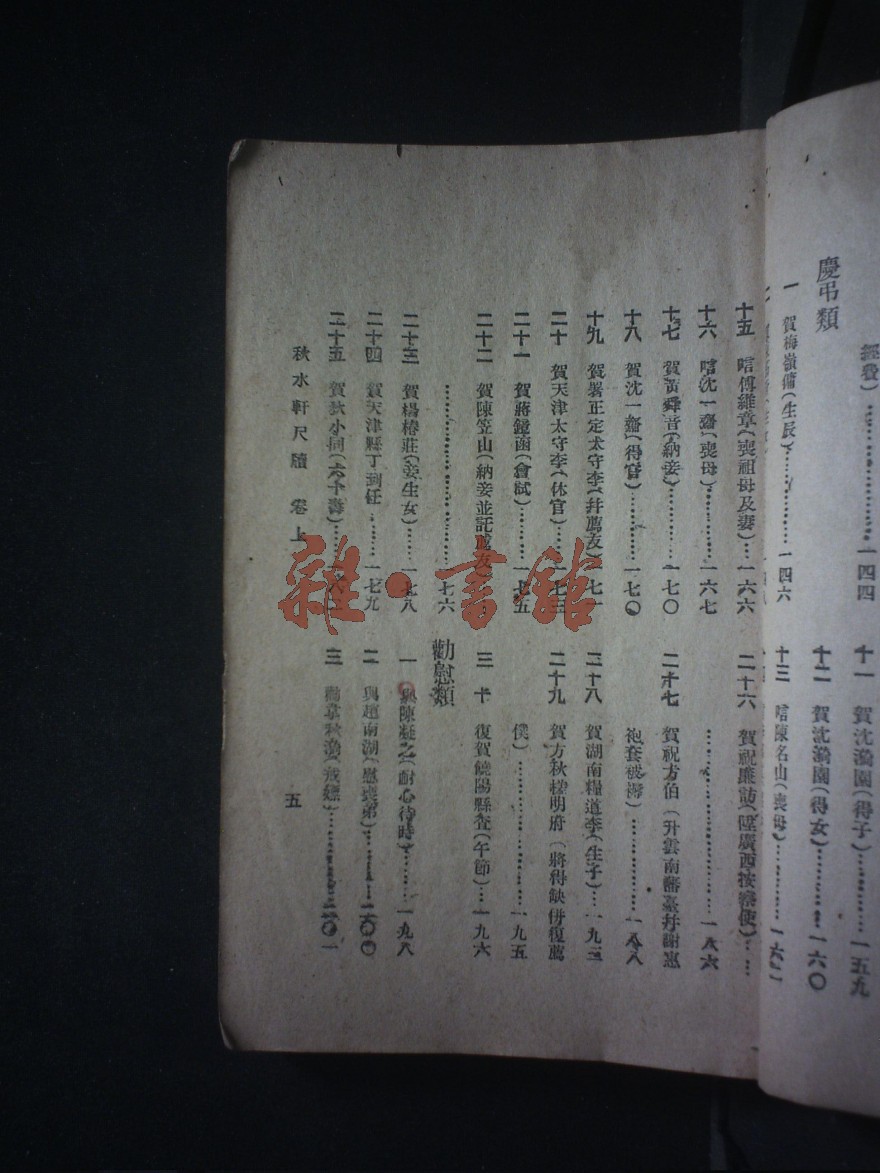 經費)……一四四
十一 賀沈漪園(得子)……一五九
慶弔類
十二 賀沈漪園(得女)……一六〇
一 賀梅嶺傭(生辰)……一四六
十三 唁陳名山(喪母)……一六
十五 唁傅維章(喪祖母及妻)…一六六
十六 唁沈一齋(喪母)……一六七
十七 賀黃舜音(納妾)……一七〇
十八 賀沈一齋(得官)……一七〇
十九 賀署正定太守李(幷薦友)
二十 賀天津太守李(休官)
二十一 賀蔣鏡函(會試)
二十二 賀陳笠山(納妾並託薦友)
……七六
二十三 賀楊椿莊(妾生女)……一七八
二十四 賀天津縣丁到任……一七九
二十五 賀狄小同(六十壽)
二十六 賀祝廉訪(陞廣西按察使)……
……一八六
二十七 賀祝方伯(升雲南藩臺幷謝惠
袍套被褥)……一八八
二十八 賀湖南糧道李(生子)…一九三
二十九 賀方秋槎明府(將得缺併復薦
僕)……一九五
三十 復賀饒陽縣查(午節)…一九六
勸慰類
一 與陳凝之(耐心待時)……一九八
二 與趙南湖(慰喪弟)……二〇〇
三 勸章秋漁(戒嫖)……二〇一
秋水軒尺牘 卷上
五
雜·書館